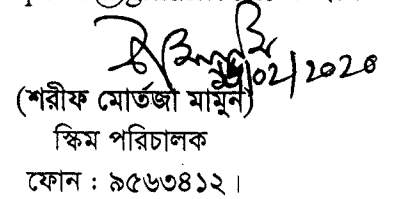 /02/2020
(শরীফ মোর্তজা মামুন)
স্কিম পরিচালক
ফোন : ৯৫৬৩৪১২।